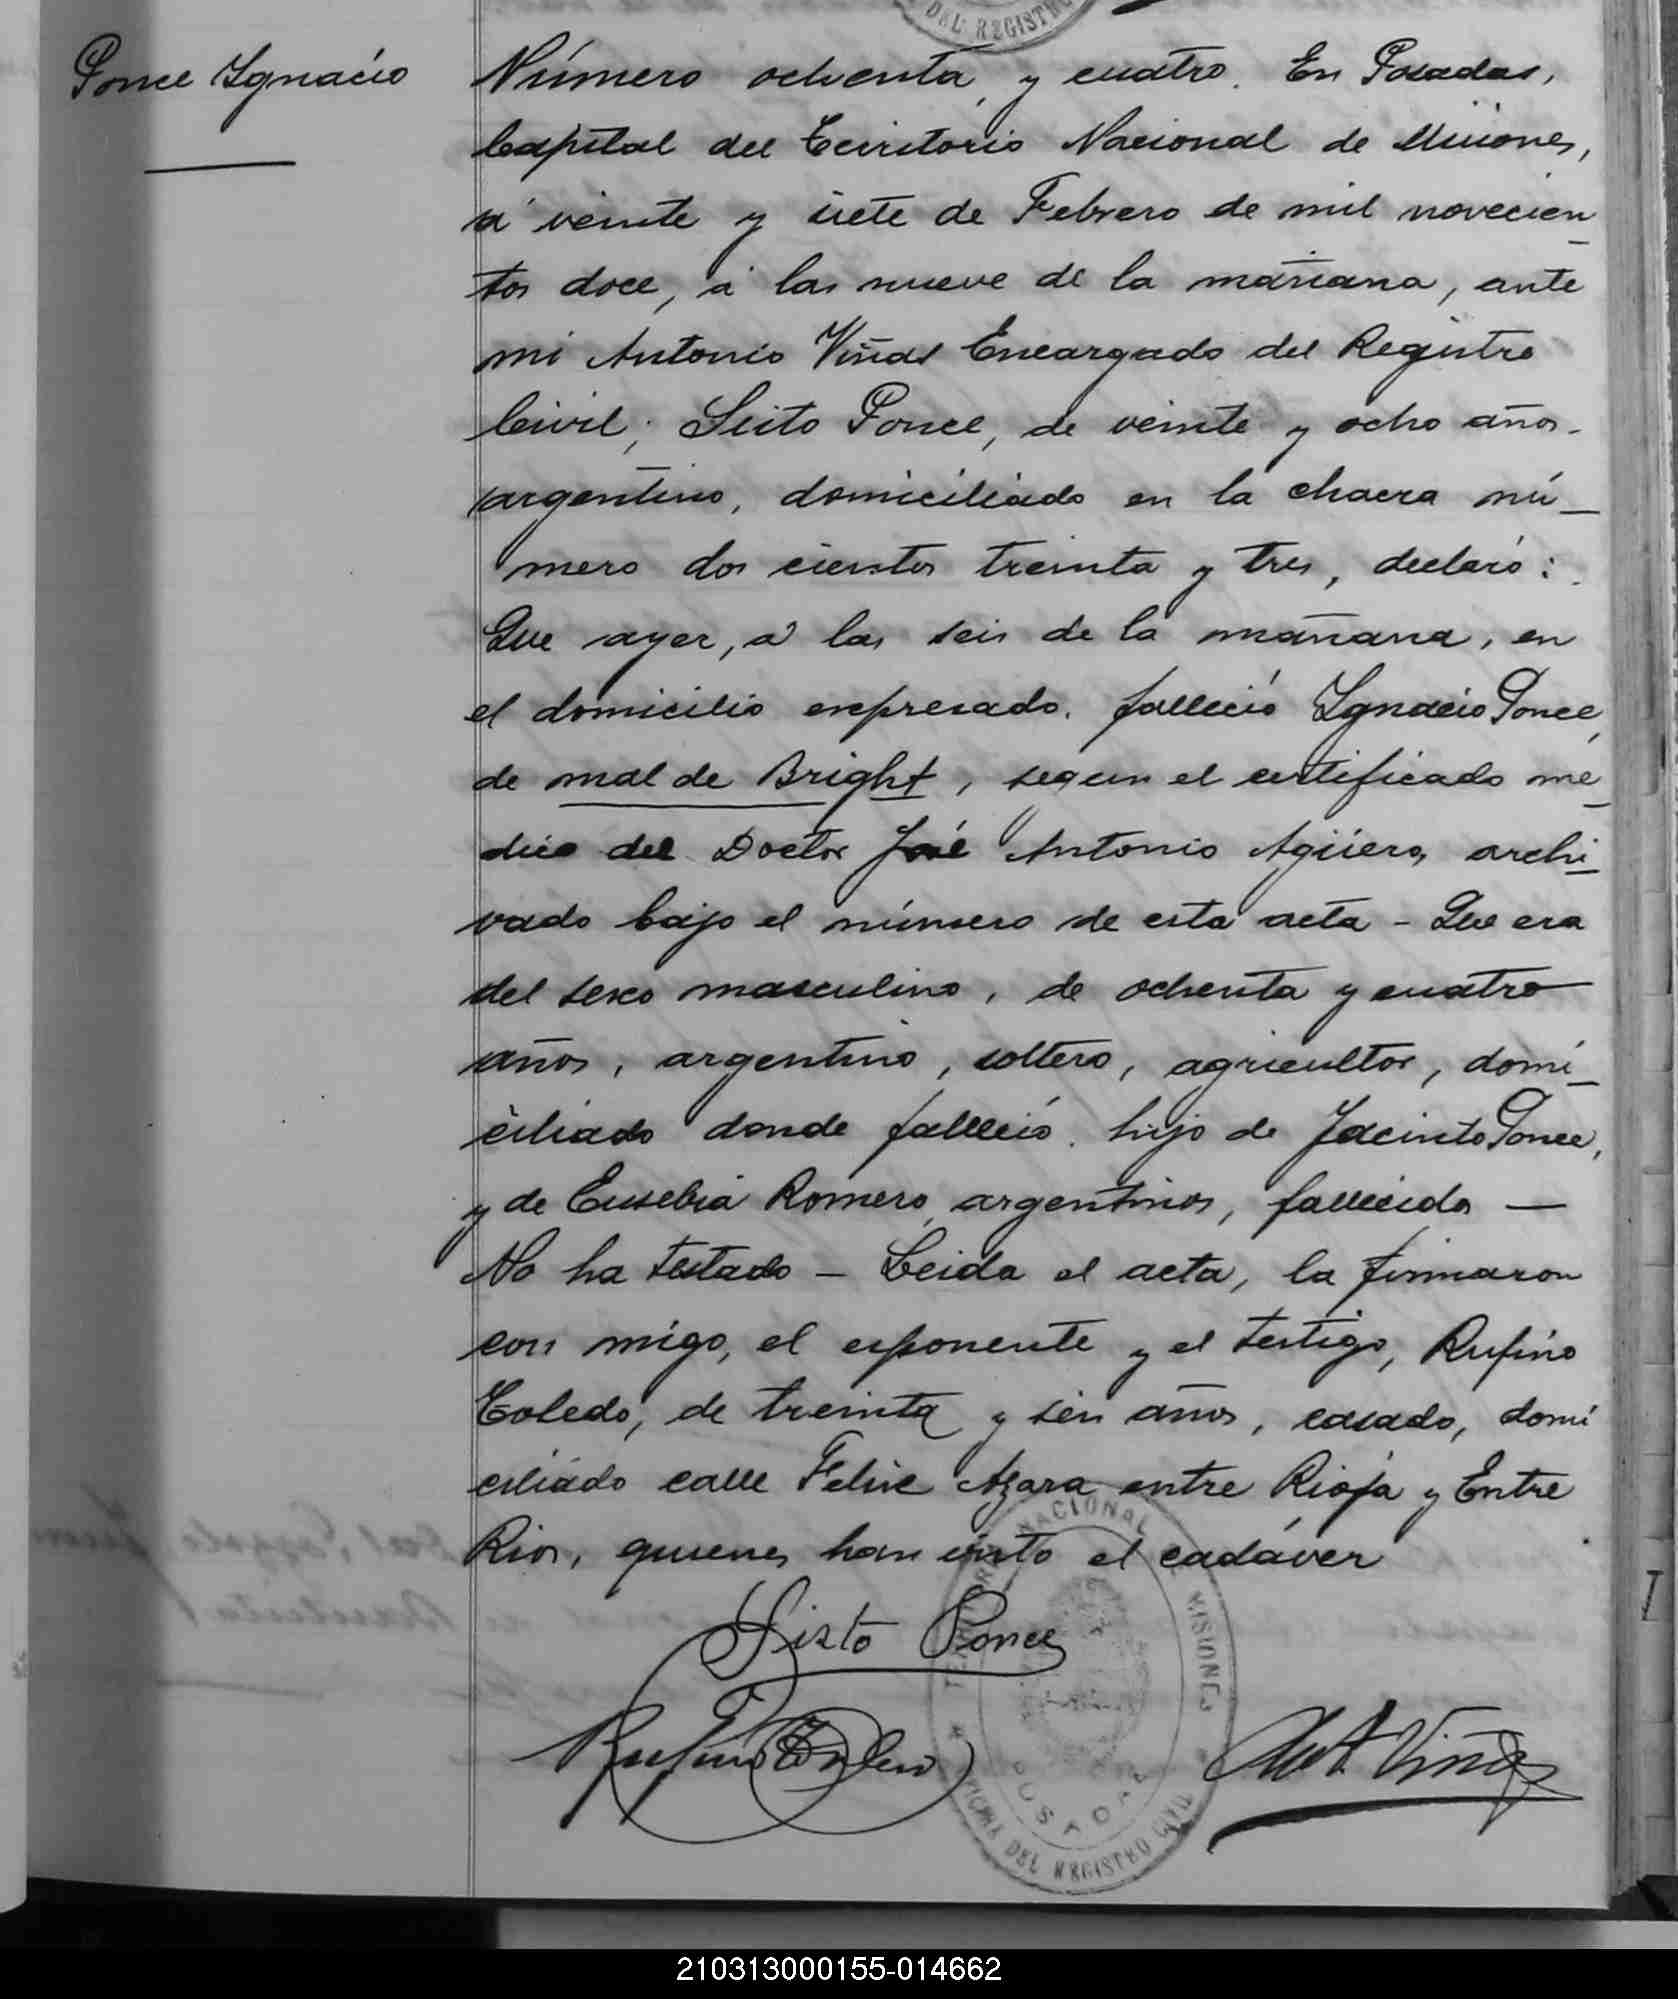 DEL REGISTRO
Ponce Ygnacio
Número ochenta y cuatro. En Posadas,
Capital del Territorio Nacional de Misiones,
á veinte y siete de Febrero de mil novecien
tos doce, á las nueve de la mañana, ante
mi Antonio Viñas Encargado del Registro
Civil; Sisto Ponce, de veinte y ocho años.
argentino, domiciliado en la chacra nú_
mero dos cientos treinta y tres, declaró:
Que ayer, á las seis de la mañana, en
el domicilio expresado, falleció Ygnacio Ponce,
de mal de Bright, segun el certificado mé_
dico del Doctor José Antonio Agüero, archi_
vado bajo el número de esta acta - Que era
del sexo masculino, de ochenta y cuatro
años, argentino, soltero, agricultor, domi_
ciliado donde falleció, hijo de Jacinto Ponce,
y de Eusebia Romero, argentinos, fallecidos —
No ha testado — Leida el acta, la firmaron
con migo, el exponente y el testigo, Rufino
Toledo, de treinta y seis años, casado, domi
ciliado calle Felix Azara entre Rioja y Entre
Rios, quienes han visto el cadáver
Sisto Ponce
Rufino Toledo
Ant. Viñas
TERRITORIO NACIONAL DE MISIONES
OFICINA DEL REGISTRO CIVIL
POSADAS
210313000155-014662